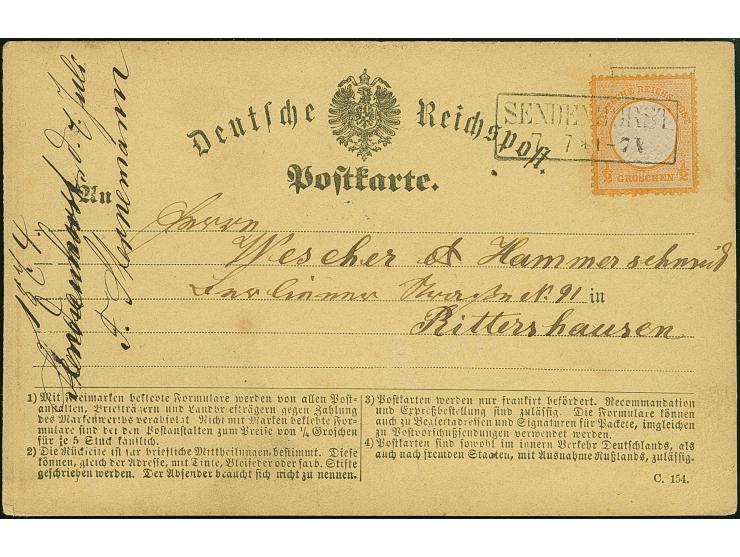 Deutsche Reichspost.
Postkarte.
SENDENHORST
7 7
GROSCHEN
An
Herrn
Wescher & Hammerschmid
Berliner Straße N. 91 in
Rittershausen
1874
Sendenhorst d. 7 Juli
F. Hennemann
1) Mit Freimarken beklebte Formulare werden von allen Post-
anstalten, Briefträgern und Landbriefträgern gegen Zahlung
des Markenwerths verabfolgt. Nicht mit Marken beklebte For-
mulare sind bei den Postanstalten zum Preise von ¼ Groschen
für je 5 Stück käuflich.
2) Die Rückseite ist für briefliche Mittheilungen bestimmt. Diese
können, gleich der Adresse, mit Tinte, Bleifeder oder farb. Stifte
geschrieben werden. Der Absender braucht sich nicht zu nennen.
3) Postkarten werden nur frankirt befördert. Recommandation
und Expreßbestellung sind zulässig. Die Formulare können
auch zu Begleitadressen und Signaturen für Packete, imgleichen
zu Postvorschußsendungen verwendet werden.
4) Postkarten sind sowohl im innern Verkehr Deutschlands, als
auch nach fremden Staaten, mit Ausnahme Rußlands, zulässig.
C. 154.